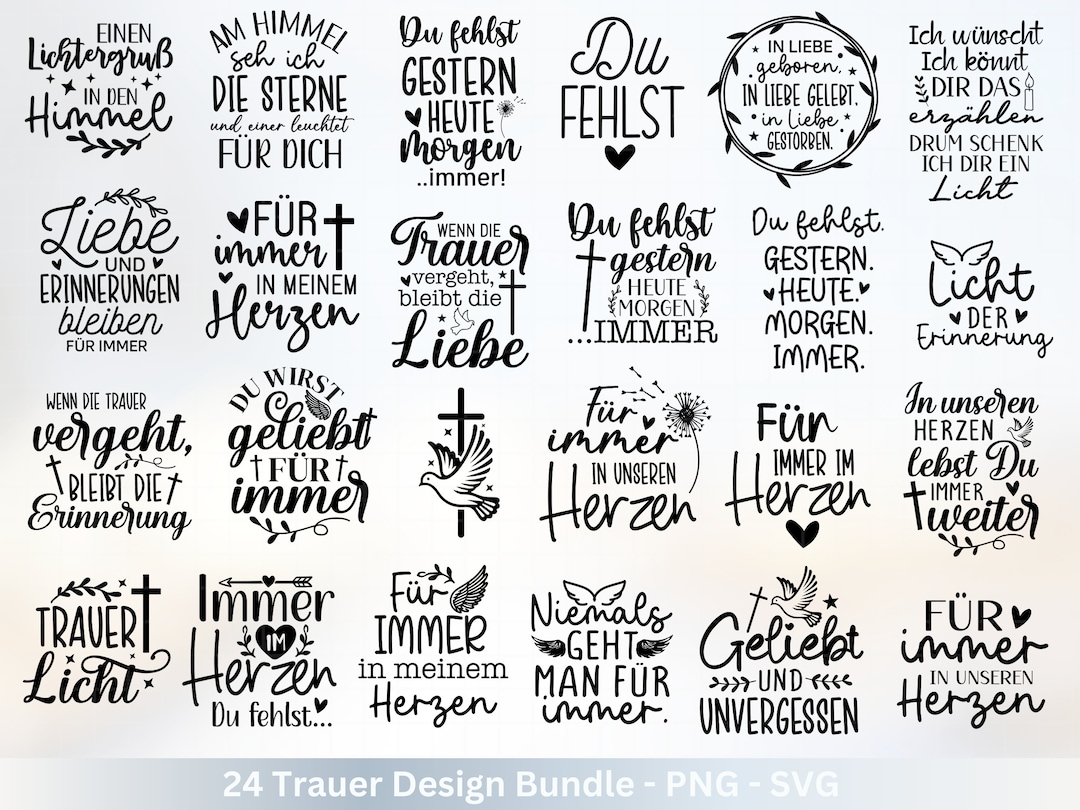 EINEN
Lichtergruß
IN DEN
Himmel
AM HIMMEL
seh ich
DIE STERNE
und einer leuchtet
FÜR DICH
Du fehlst
GESTERN
HEUTE
morgen
..immer!
Du
FEHLST
IN LIEBE
geboren,
IN LIEBE GELEBT,
in Liebe
GESTORBEN.
Ich wünscht
Ich könnt
DIR DAS
erzählen
DRUM SCHENK
ICH DIR EIN
Licht
Liebe
UND
ERINNERUNGEN
bleiben
FÜR IMMER
FÜR
immer
IN MEINEM
Herzen
WENN DIE
Trauer
vergeht,
bleibt die
Liebe
Du fehlst
gestern
HEUTE
MORGEN
...IMMER
Du fehlst.
GESTERN.
HEUTE.
MORGEN.
IMMER.
Licht
DER
Erinnerung
WENN DIE TRAUER
vergeht,
BLEIBT DIE
Erinnerung
DU WIRST
geliebt
FÜR
immer
Für
immer
IN UNSEREN
Herzen
Für
IMMER IM
Herzen
In unseren
HERZEN
lebst Du
IMMER
weiter
TRAUER
Licht
Immer
IM
Herzen
Du fehlst...
Für
IMMER
in meinem
Herzen
Niemals
GEHT
MAN FÜR
immer.
Geliebt
UND
UNVERGESSEN
FÜR
immer
IN UNSEREN
Herzen
24 Trauer Design Bundle - PNG - SVG